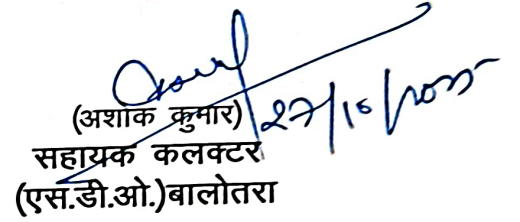 (अशोक कुमार) 27/10/2025
सहायक कलक्टर
(एस.डी.ओ.)बालोतरा